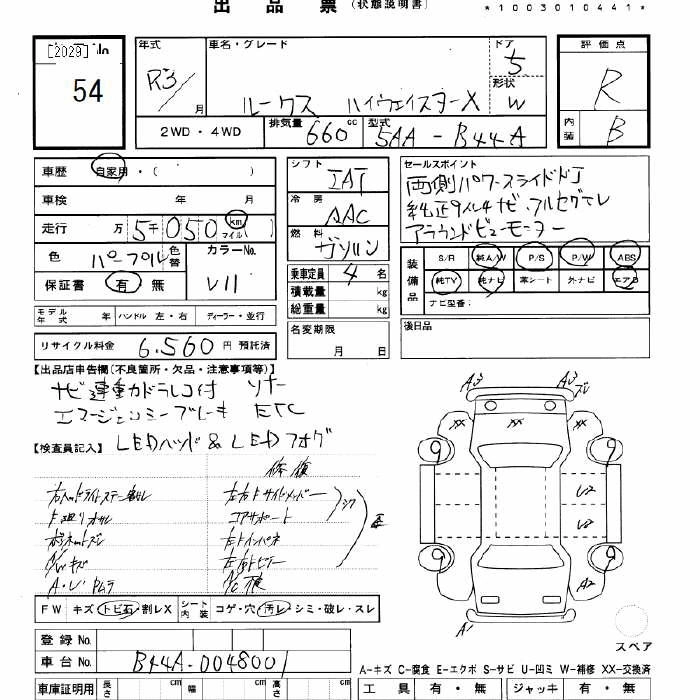 出品票 (状態説明書) *1003010441*
[2029] 54
年式 R3/ 月
車名・グレード ルークス ハイウェイスターX
ドア 5
形状 W
評価点 R
内装 B
2WD・4WD 排気量 660 cc 型式 5AA-B44A
車歴 自家用・( )
車検 年 月
走行 万 5千 050 km マイル
色 パープル 色替 カラーNo. V11
保証書 有・無
シフト IAT
冷房 AAC
燃料 ガソリン
乗車定員 4 名
積載量 kg
総重量 kg
セールスポイント
両側パワースライドドア
純正9インチナビ、フルセグTV
アラウンドビューモニター
装備品 S/R 純A/W P/S P/W ABS
純TV 純ナビ 革シート 外ナビ エアB
ナビ型番:
モデル年式 年 ハンドル 左・右 ディーラー・並行
名変期限 月 日
後日品
リサイクル料金 6,560 円 預託済
【出品店申告欄(不良箇所・欠品・注意事項等)】
ナビ連動カドラレコ付 ソナー
エマージェンシーブレーキ ETC
LEDヘッド & LEDフォグ
【検査員記入】
修復
コアサポート
左右
A/W キズ
FW キズ・トビ石・割レX シート内装 コゲ・穴・汚レ・シミ・破レ・スレ
A3 A3
XX XX XX
9 9
U2
U2
9 9
A2
A1
スペア
登録No.
車台No. B44A-0048001
A-キズ C-腐食 E-エクボ S-サビ U-凹ミ W-補修 XX-交換済
車庫証明用 長さ cm 幅 cm 高さ cm
工具 有・無 ジャッキ 有・無